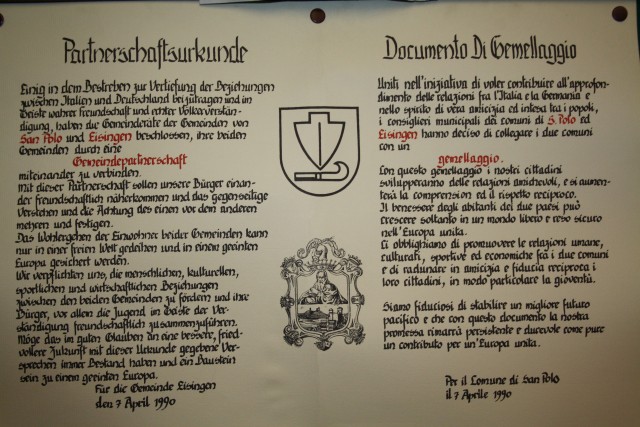 Partnerschaftsurkunde
Einig in dem Bestreben zur Vertiefung der Beziehungen
zwischen Italien und Deutschland beizutragen und im
Geiste wahrer Freundschaft und echter Völkerverstän-
digung, haben die Gemeinderäte der Gemeinden von
San Polo und Eisingen beschlossen, ihre beiden
Gemeinden durch eine
Gemeindepartnerschaft
miteinander zu verbinden.
Mit dieser Partnerschaft sollen unsere Bürger einan-
der freundschaftlich näherkommen und das gegenseitige
Verstehen und die Achtung des einen vor dem anderen
mehren und festigen.
Das Wohlergehen der Einwohner beider Gemeinden kann
nur in einer freien Welt gedeihen und in einem geeinten
Europa gesichert werden.
Wir verpflichten uns, die menschlichen, kulturellen,
sportlichen und wirtschaftlichen Beziehungen
zwischen den beiden Gemeinden zu fördern und ihre
Bürger, vor allen die Jugend im Geiste der Ver-
ständigung freundschaftlich zusammenzuführen.
Möge das im guten Glauben an eine bessere, fried-
vollere Zukunft mit dieser Urkunde gegebene Ver-
sprechen immer Bestand haben und ein Baustein
sein zu einem geeinten Europa.
Für die Gemeinde Eisingen
den 7 April 1990
Documento Di Gemellaggio
Uniti nell'iniziativa di voler contribuire all'approfon-
dimento delle relazioni fra l'Italia e la Germania e
nello spirito di vera amicizia ed intesa tra i popoli,
i consiglieri municipali dei comuni di S. Polo ed
Eisingen hanno deciso di collegare i due comuni
con un
gemellaggio.
Con questo gemellaggio i nostri cittadini
svilupperanno delle relazioni amichevoli, e si aumen-
terà la comprension ed il rispetto reciproco.
Il benessere degli abitanti dei due paesi può
crescere soltanto in un mondo libero e reso sicuro
nell'Europa unita.
Ci obblighiamo di promuovere le relazioni umane,
culturali, sportive ed economiche fra i due comuni
e di radunare in amicizia e fiducia reciproca i
loro cittadini, in modo particolare la gioventù.
Siamo fiduciosi di stabilire un migliore futuro
pacifico e che con questo documento la nostra
promessa rimarrà persistente e durevole come pure
un contributo per un'Europa unita.
Per il Comune di San Polo
il 7 Aprile 1990